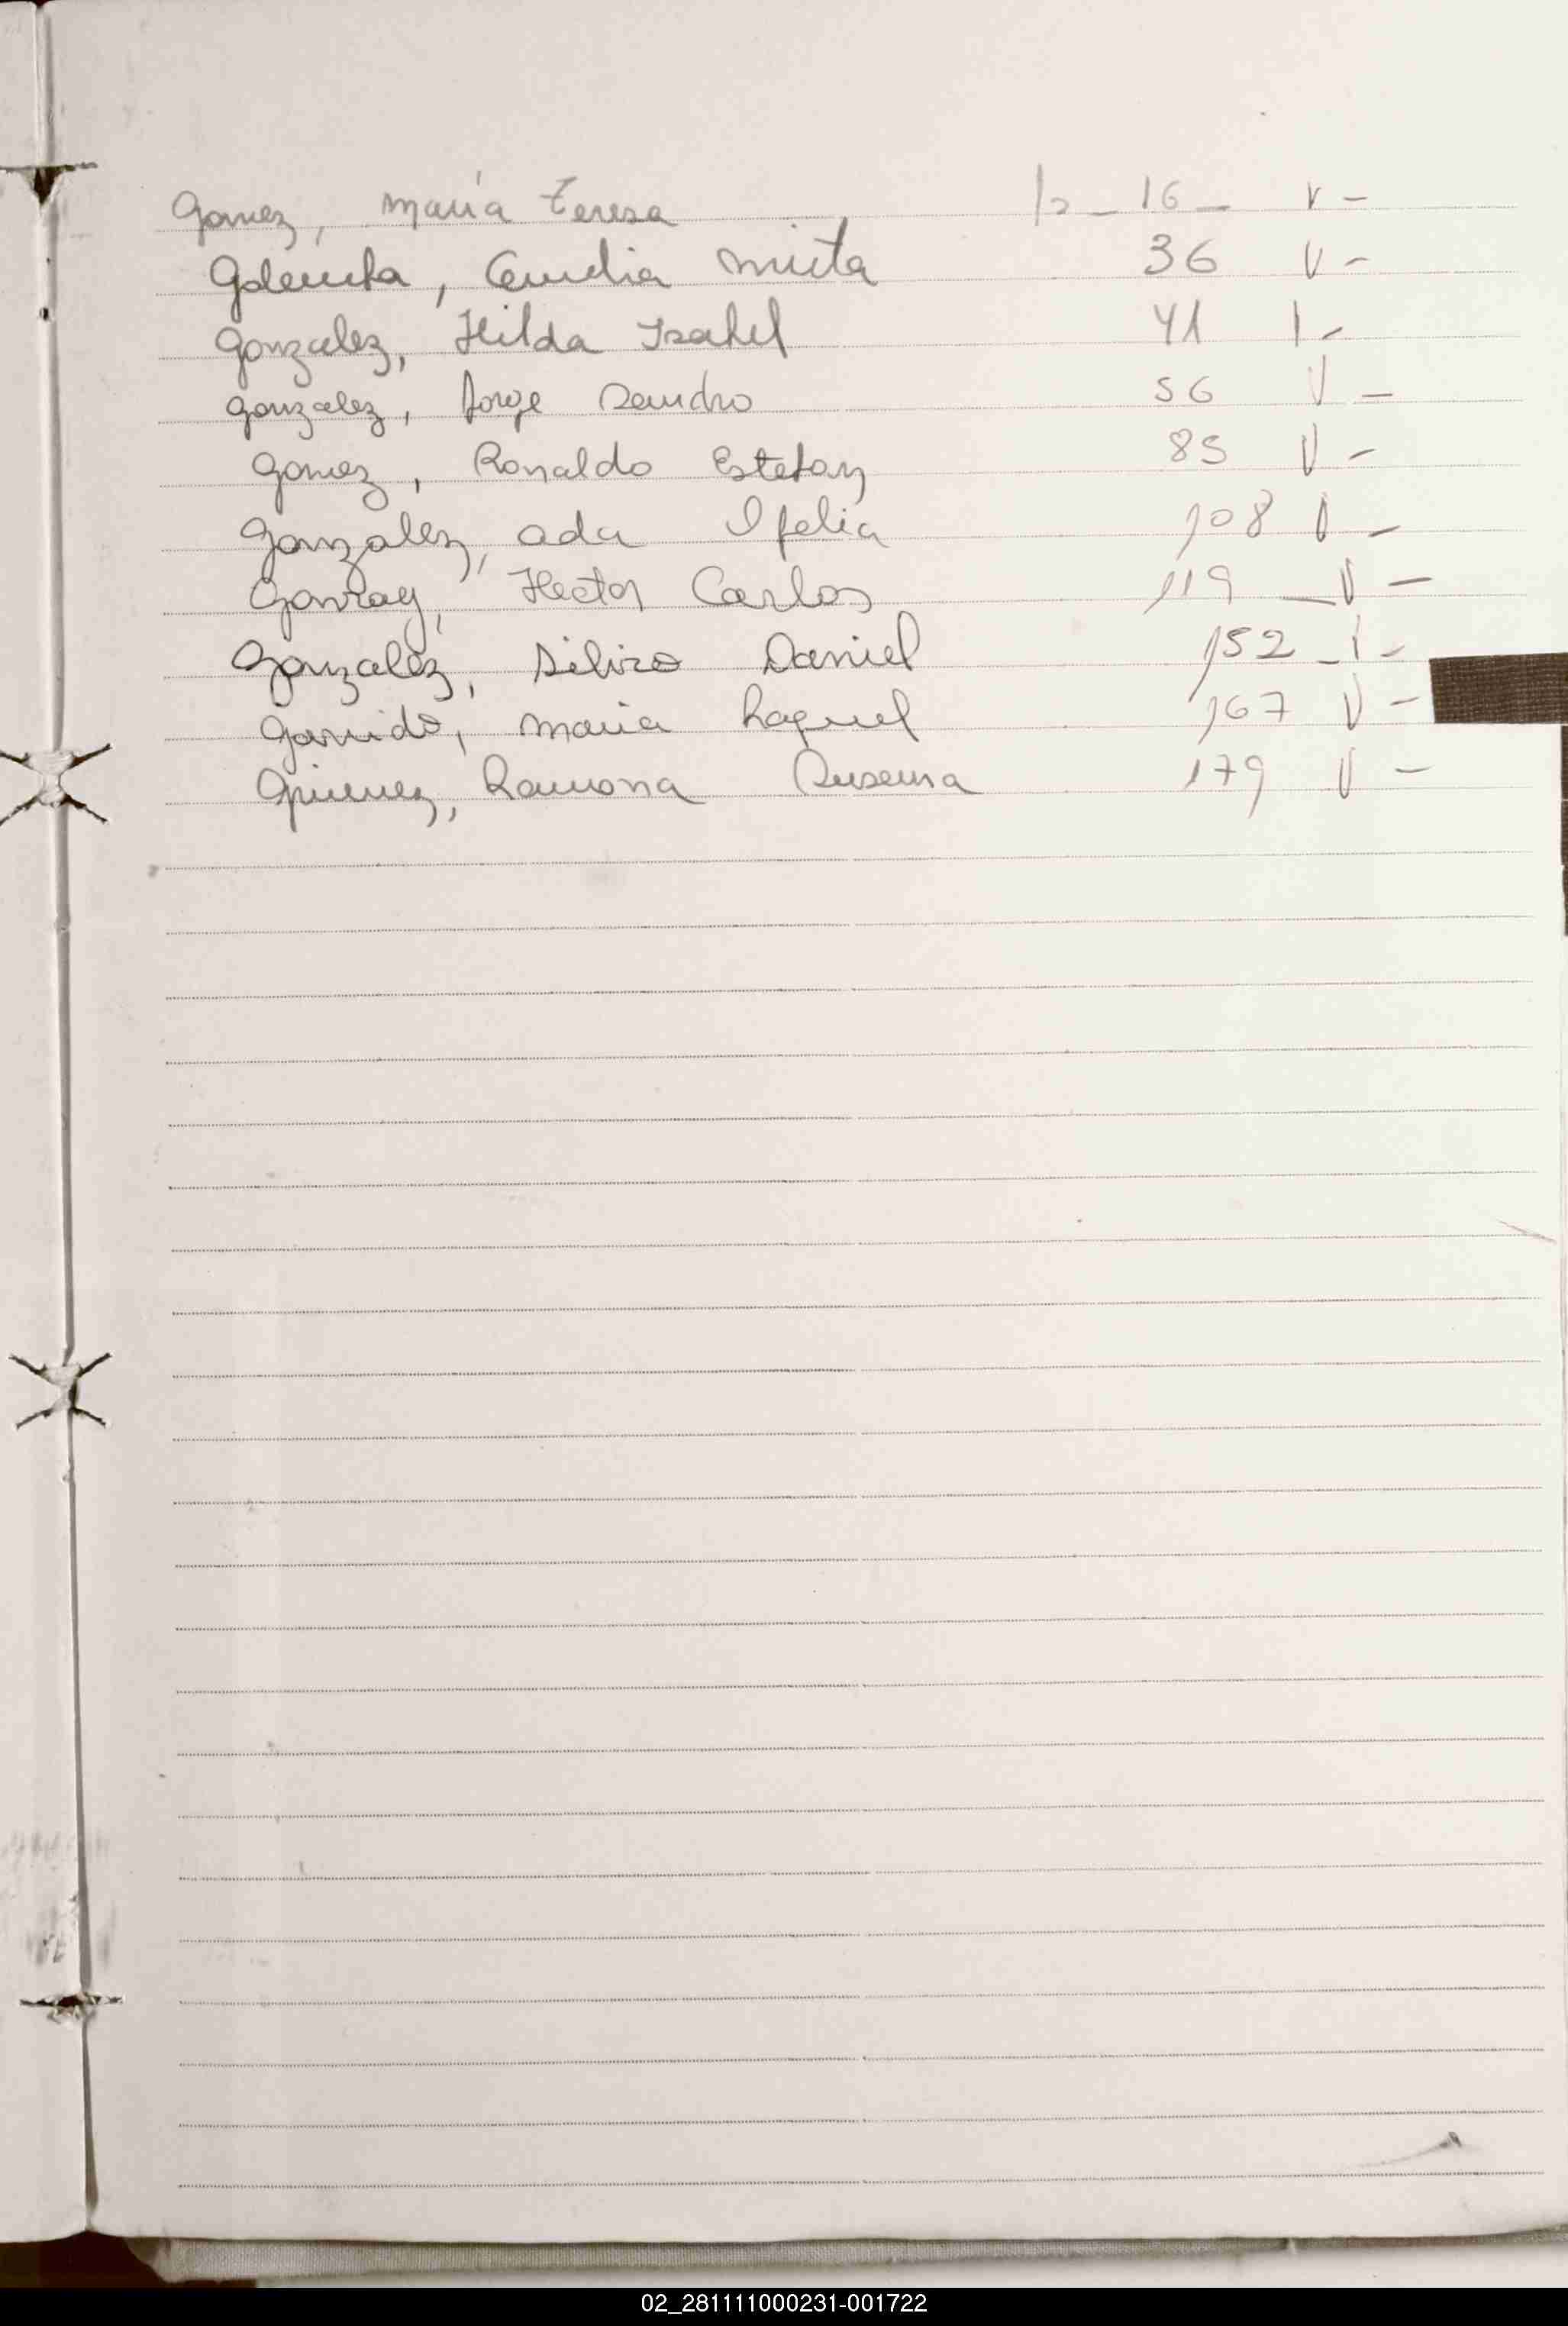 Gomez, María Teresa 12 - 16 - V -
Emilia Mirta 36 V -
Gonzalez, Hilda Isabel 41 I -
Gonzalez, Jorge Sandro 56 V -
Gomez, Ronaldo Estefan 85 V -
Gonzalez, Ada Ofelia 108 V -
Hector Carlos 119 - V -
Gonzalez, Silvio Daniel 152 - I -
Garrido, Maria Raquel 167 V -
Gimenez, Ramona Susena 179 V -
02_281111000231-001722